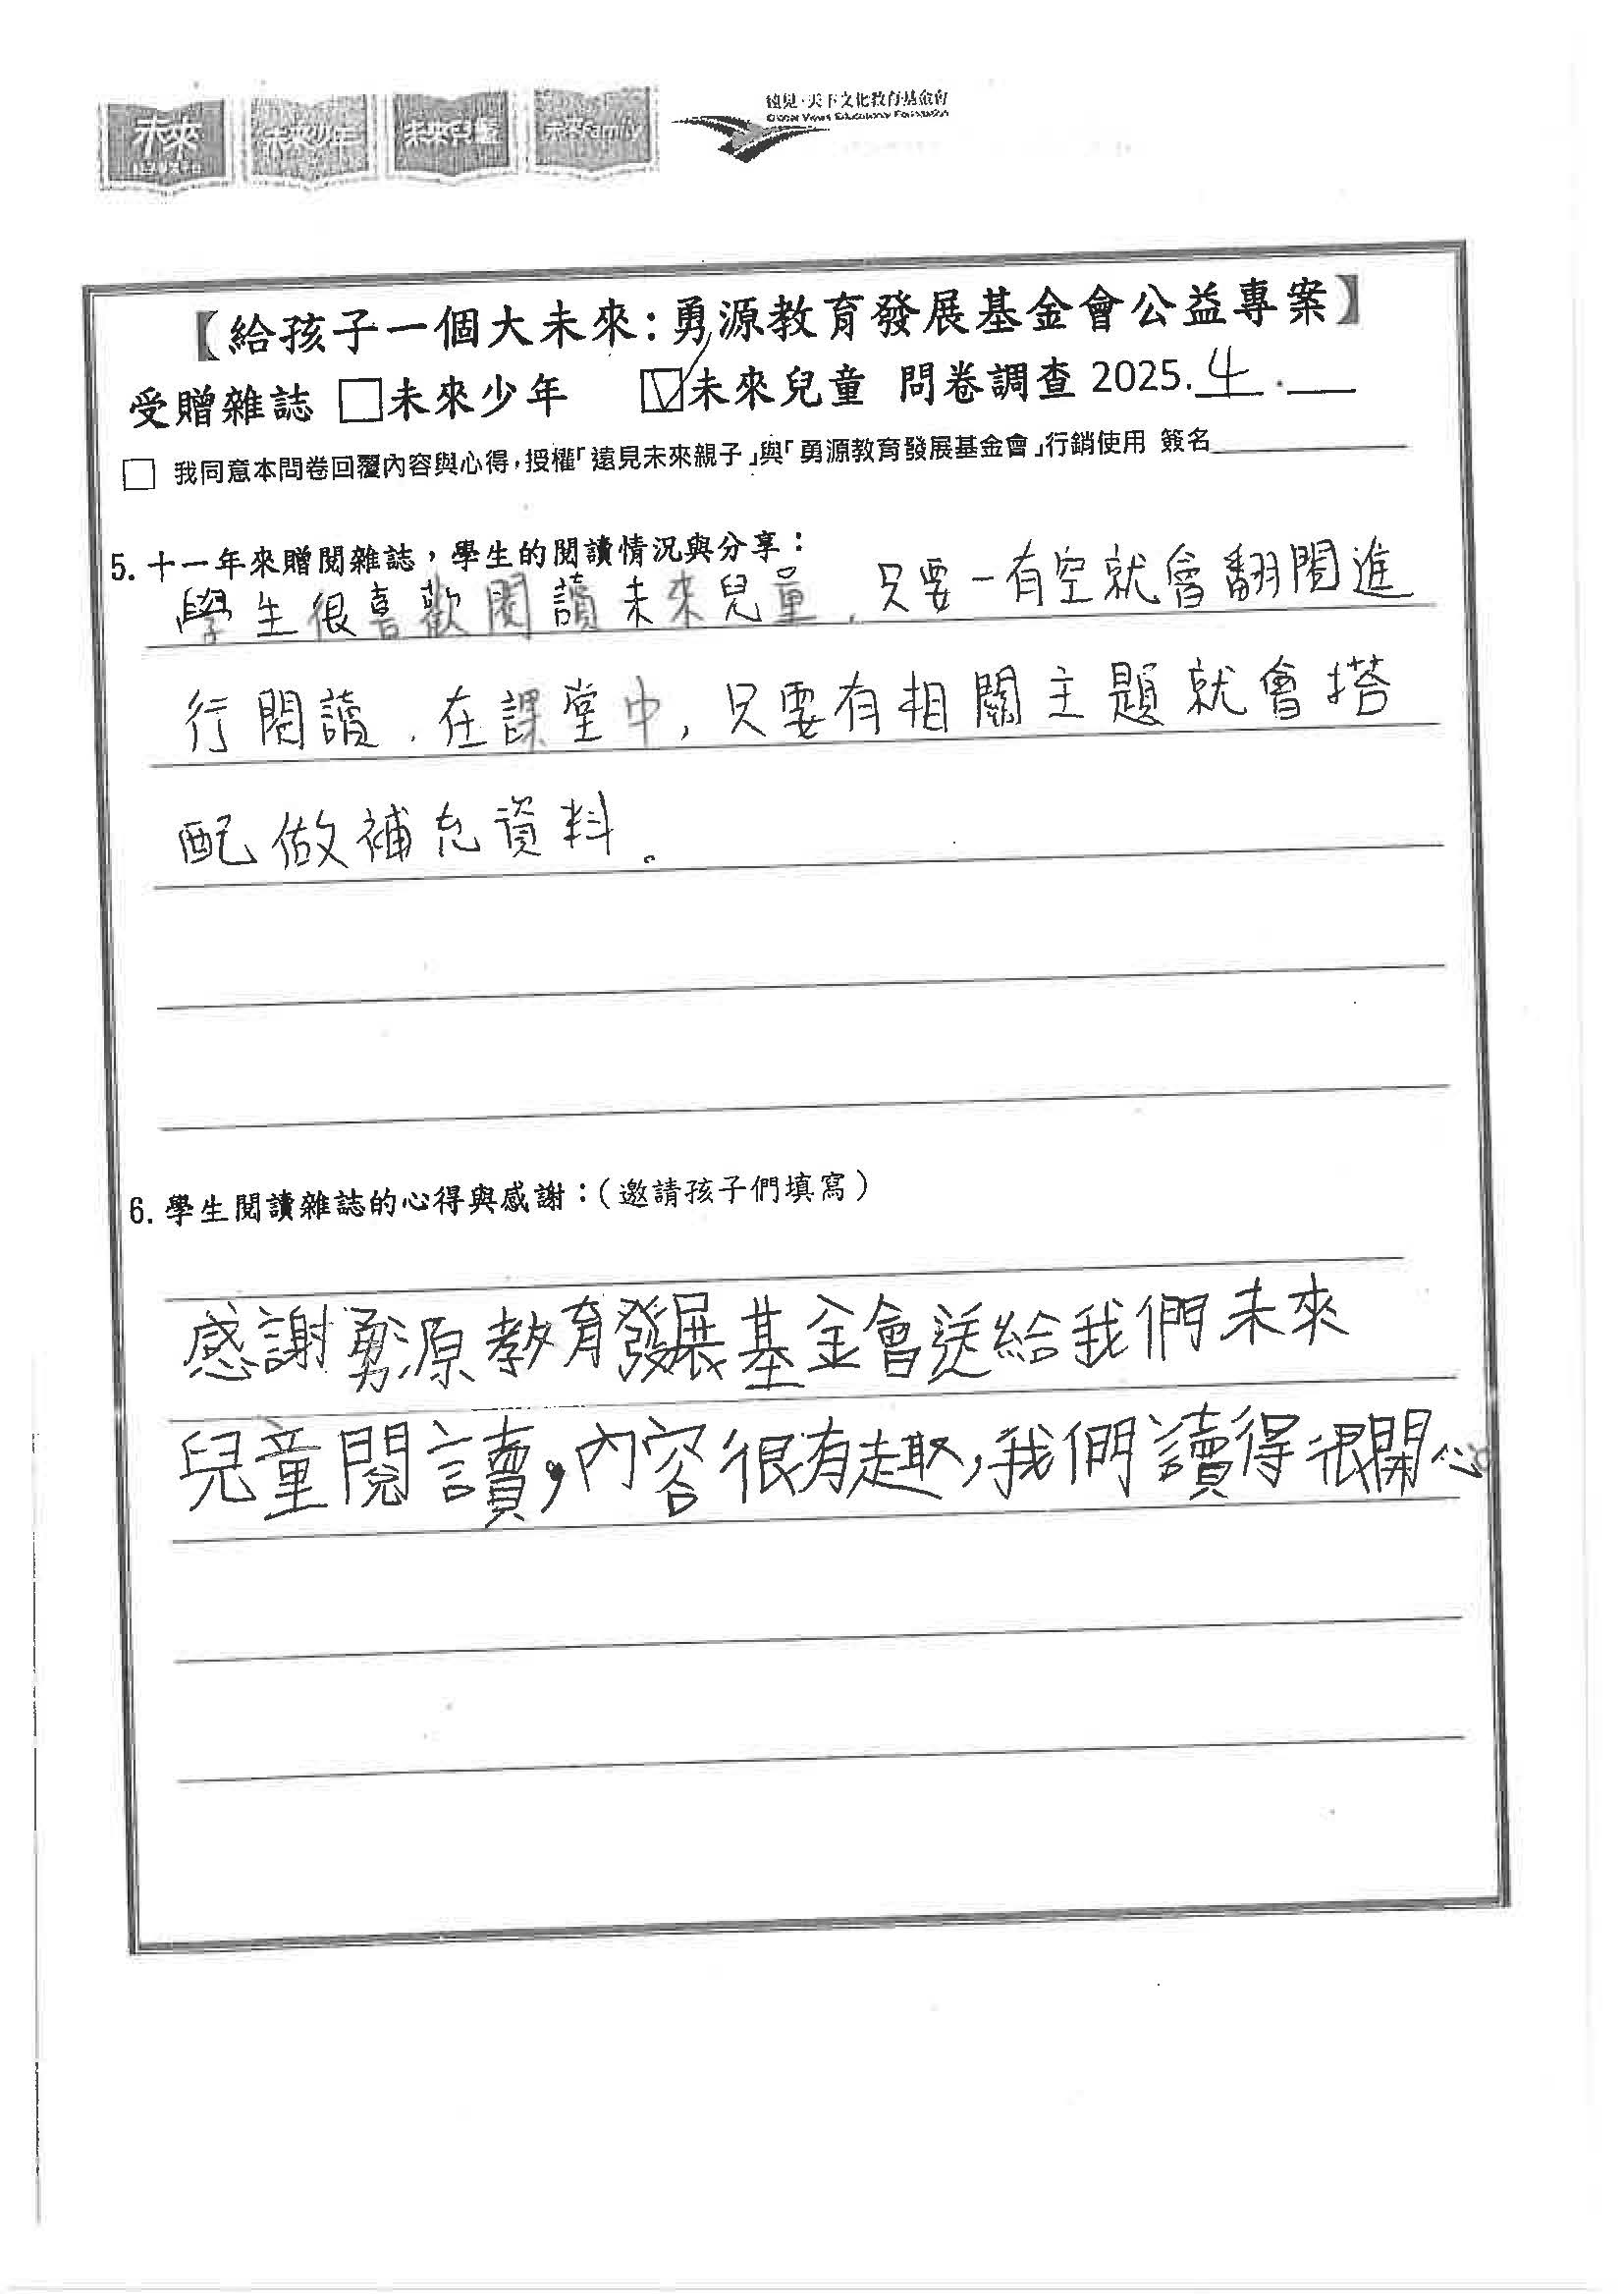 未來
未來少年
未來兒童
未來Family
遠見‧天下文化教育基金會
Global Views Educational Foundation
【給孩子一個大未來:勇源教育發展基金會公益專案】
受贈雜誌 □未來少年 ☑未來兒童 問卷調查 2025.4.__
□ 我同意本問卷回覆內容與心得,授權「遠見未來親子」與「勇源教育發展基金會」行銷使用 簽名
5. 十一年來贈閱雜誌,學生的閱讀情況與分享:
學生很喜歡閱讀未來兒童,只要一有空就會翻閱進
行閱讀.在課堂中,只要有相關主題就會搭
配做補充資料。
6. 學生閱讀雜誌的心得與感謝:(邀請孩子們填寫)
感謝勇源教育發展基金會送給我們未來
兒童閱讀,內容很有趣,我們讀得很開心。